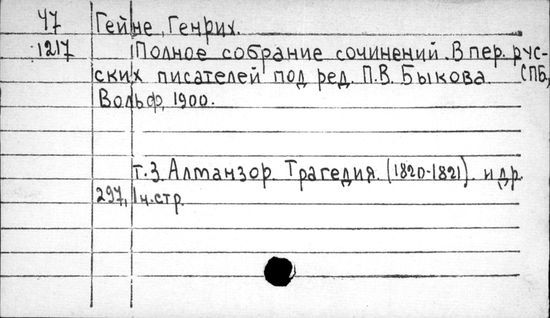 Ч7 Гейне, Генрих.
1217 Полное собрание сочинений. В пер. рус-
ских писателей под ред. П.В. Быкова. СПБ,
Вольф, 1900.
т.3. Алманзор. Трагедия. (1820-1821). и др.
297, 1 н.стр.